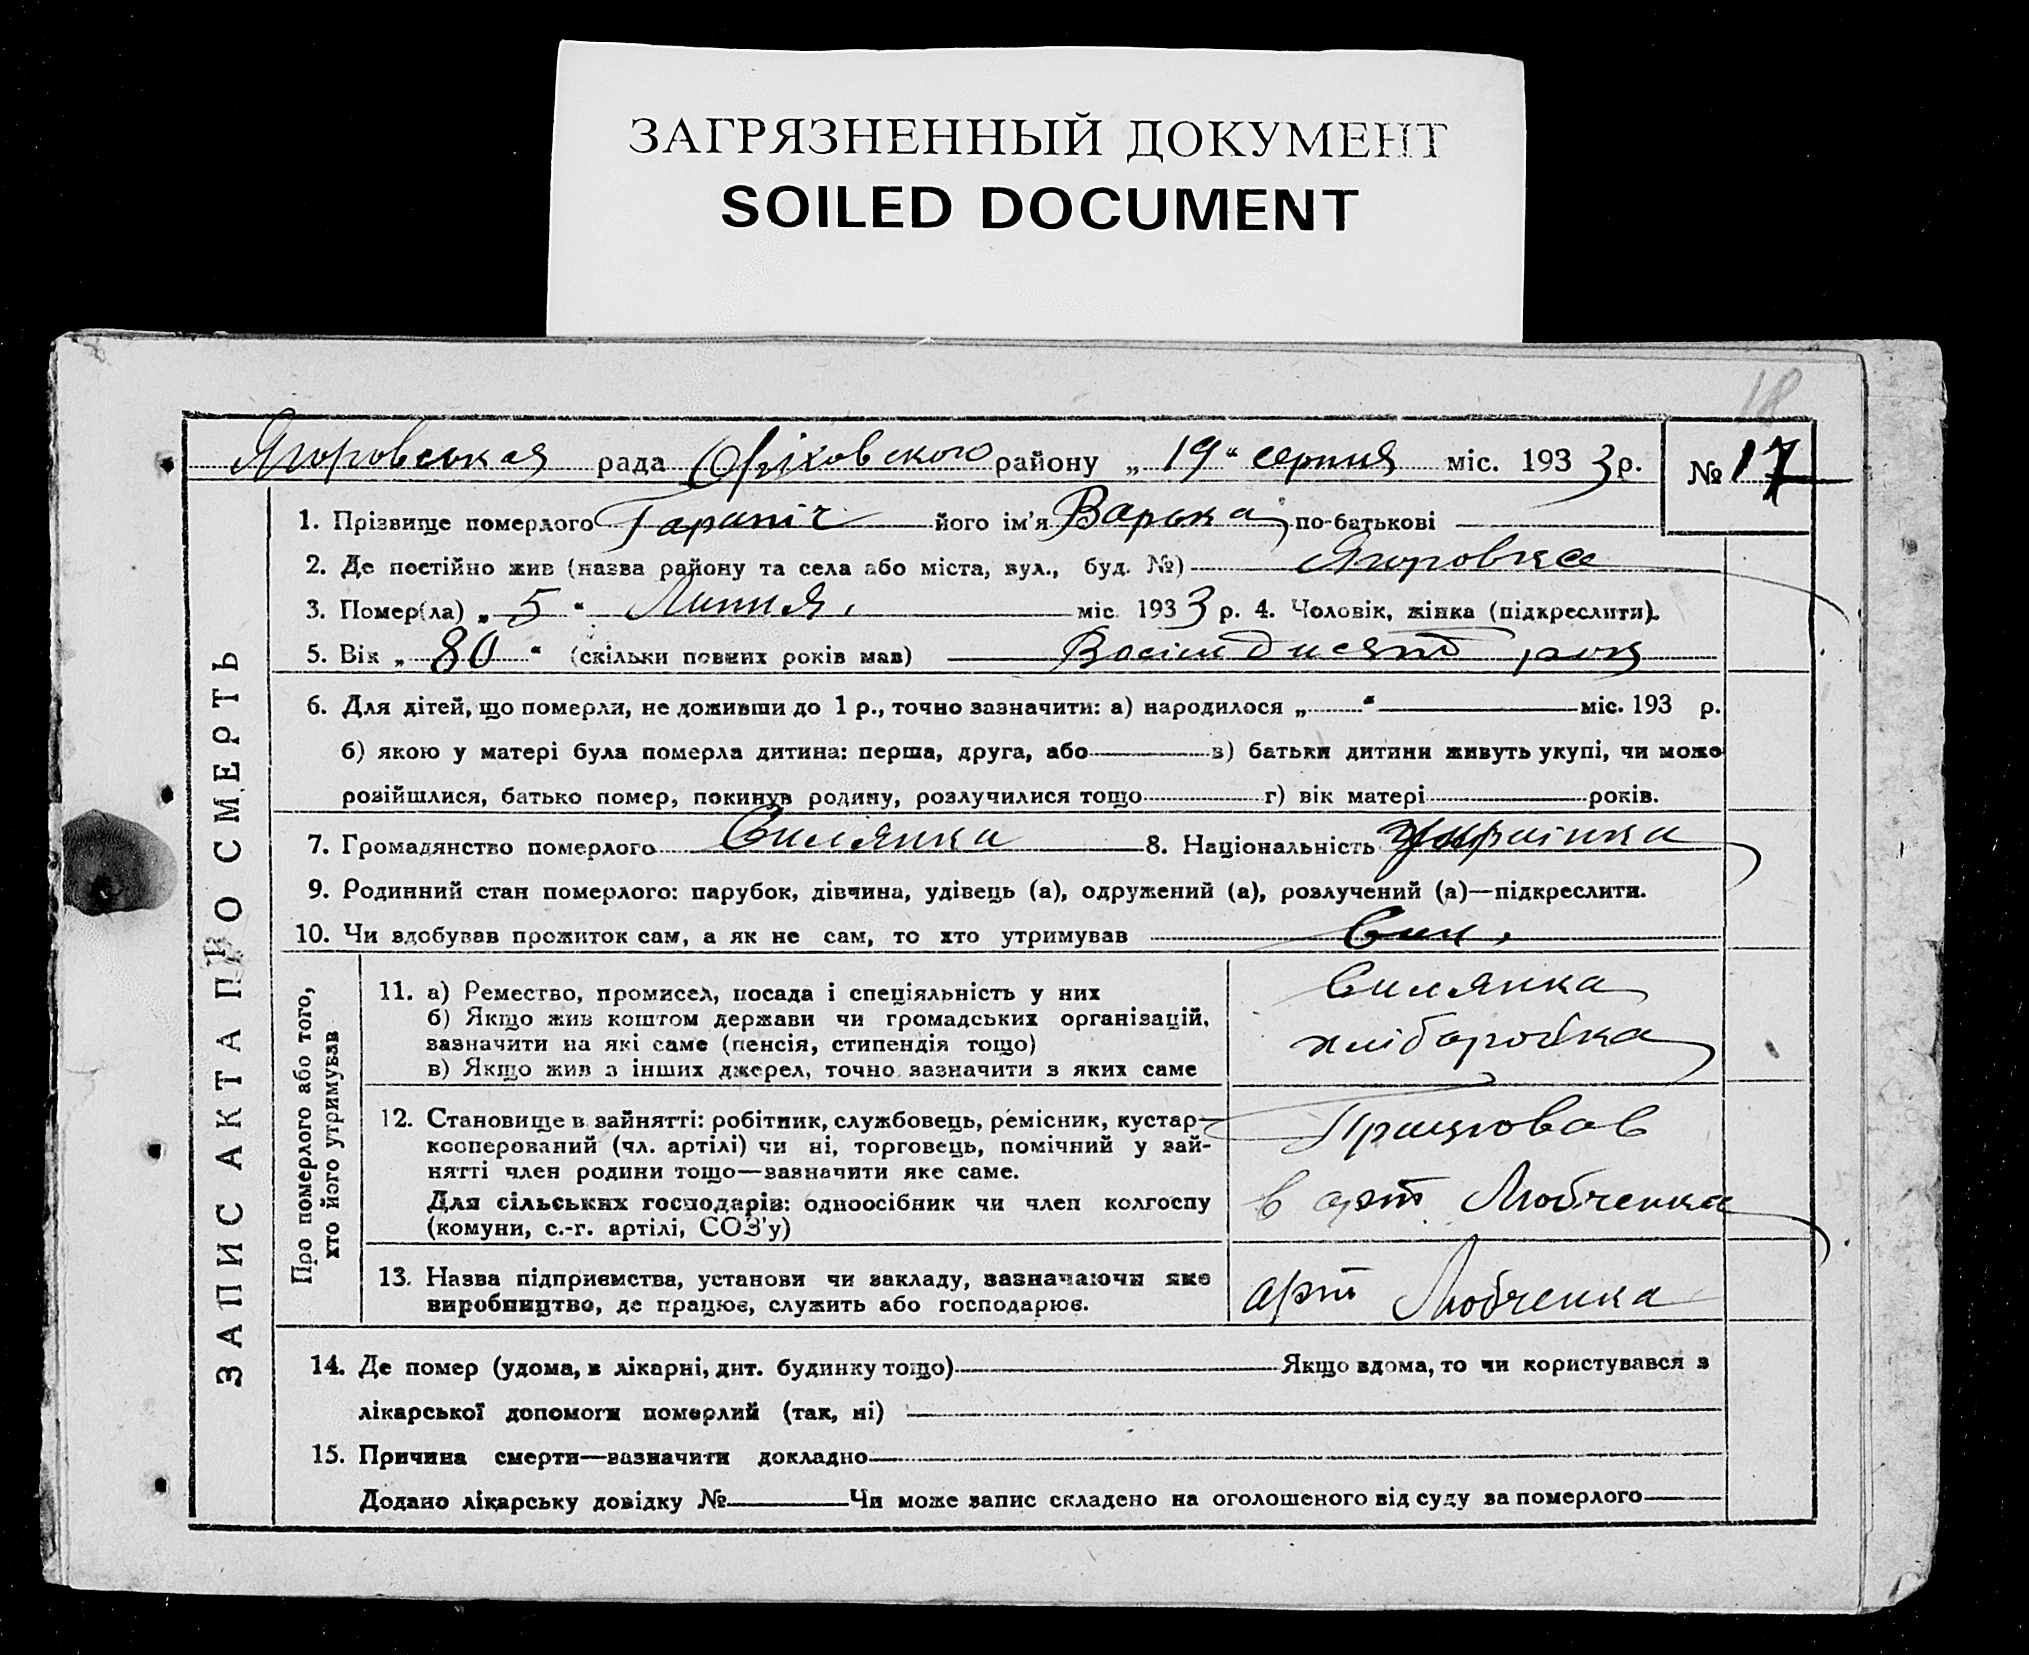 ЗАГРЯЗНЕННЫЙ ДОКУМЕНТ
SOILED DOCUMENT
18
Ягоровськая рада Оріховского району „ 19 “ серпня міс. 193 3 р. № 17
ЗАПИС АКТА ПРО СМЕРТЬ
1. Прізвище померлого Гарапіч його ім'я Варька по-батькові
2. Де постійно жив (назва району та села або міста, вул., буд. №) Ягоровка
3. Помер(ла) „ 5 “ Липня міс. 193 3 р. 4. Чоловік, жінка (підкреслити).
5. Вік „ 80 “ (скільки повних років мав) Восімдисят рок
6. Для дітей, що померли, не доживши до 1 р., точно зазначити: а) народилося „ “ міс. 193 р.
б) якою у матері була померла дитина: перша, друга, або в) батьки дитини живуть укупі, чи може
розійшлися, батько помер, покинув родину, розлучилися тощо г) вік матері років.
7. Громадянство померлого Силянка 8. Національність Украінка
9. Родинний стан померлого: парубок, дівчина, удівець (а), одружений (а), розлучений (а)—підкреслити.
10. Чи здобував прожиток сам, а як не сам, то хто утримував Син.
Про померлого або того,
хто його утримував
11. а) Ремество, промисел, посада і спеціяльність у них
б) Якщо жив коштом держави чи громадських організацій,
зазначити на які саме (пенсія, стипендія тощо)
в) Якщо жив з інших джерел, точно зазначити з яких саме
Силянка
хлібаробка
12. Становище в зайнятті: робітник, службовець, ремісник, кустар-
кооперований (чл. артілі) чи ні, торговець, помічний у зай-
нятті член родини тощо—зазначити яке саме.
Для сільських господарів: одноосібник чи член колгоспу
(комуни, с.-г. артілі, СОЗ'у)
Працював
в арт Любченка
13. Назва підприємства, установи чи закладу, зазначаючи яке
виробництво, де працює, служить або господарює.
арт Любченка
14. Де помер (удома, в лікарні, дит. будинку тощо) Якщо вдома, то чи користувався з
лікарської допомоги померлий (так, ні)
15. Причина смерти—зазначити докладно
Додано лікарську довідку № Чи може запис складено на оголошеного від суду за померлого